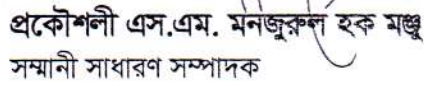 প্রকৌশলী এস.এম. মনজুরুল হক মঞ্জু
সম্মানী সাধারণ সম্পাদক